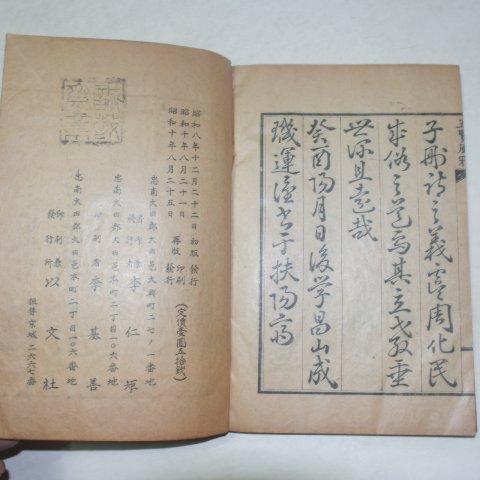 子刪詩之義 周化民
成俗之 其立 垂
世深且遠哉
癸酉陽月日後学昌山成
璣運 书于扶陽
昭和八年十二月二十二日初版發行
昭和十年八月二十一日再版印刷
昭和十年八月二十五日再版發行
(定價壹圓五拾錢)
忠南大田郡大田邑大興町二七ノ一番地
發行者 李仁矩
忠南大田郡大田邑本町二丁目一〇六番地
印刷者 李基善
忠南大田郡大田邑本町二丁目一〇六番地
印刷兼發行所 以文社
振替京城二六六七番